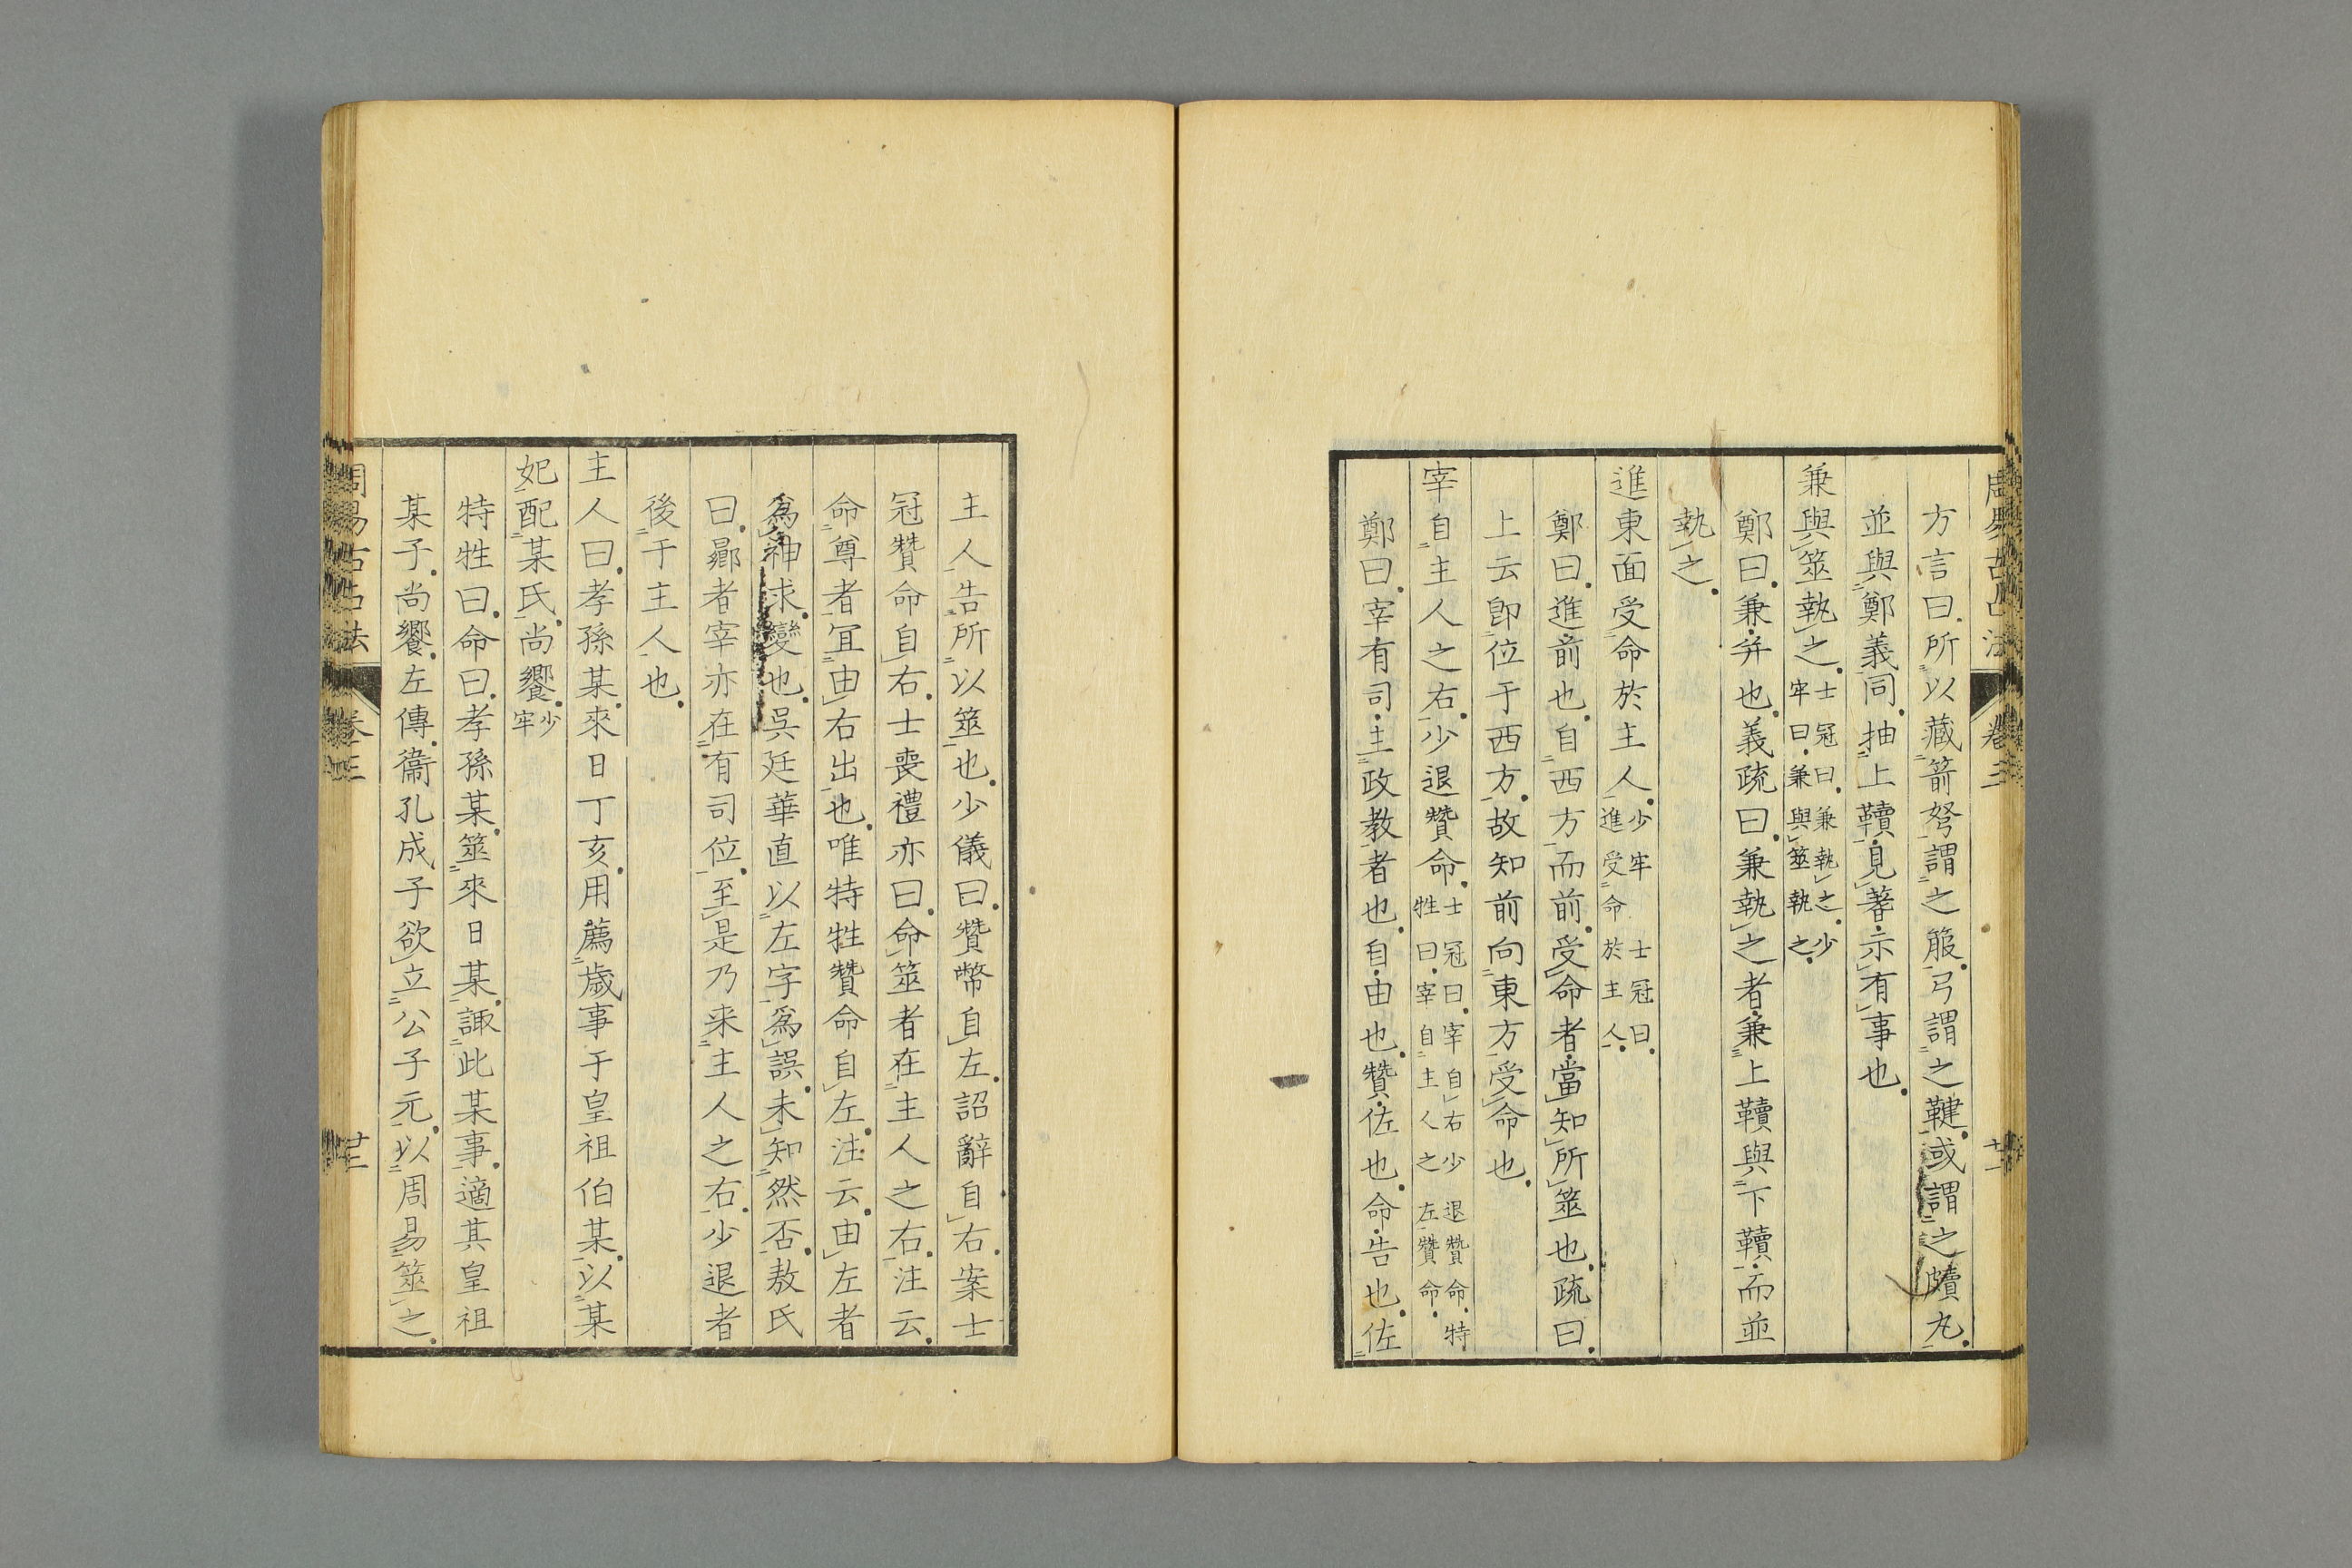 周易古占法 卷三 十二
方言曰所以藏箭弩謂之箙弓謂之鞬或謂之皾丸
並與鄭義同抽上韇見蓍示有事也
兼與筮執之士冠曰兼執之少牢曰兼與筮執之
鄭曰兼并也義疏曰兼執之者兼上韇與下韇而並
執之
進東面受命於主人少牢進受命於主人士冠曰
鄭曰進前也自西方而前受命者當知所筮也疏曰
上云卽位于西方故知前向東方受命也
宰自主人之右少退贊命士冠曰宰自右少退贊命特牲曰宰自主人之左贊命
鄭曰宰有司主政教者也自由也贊佐也命告也佐
主人告所以筮也少儀曰贊幣自左詔辭自右案士
冠贊命自右士喪禮亦曰命筮者在主人之右注云
命尊者冝由右出也唯特牲贊命自左注云由左者
爲神求變也吳廷華直以左字爲誤未知然否敖氏
曰曏者宰亦在有司位至是乃来主人之右少退者
後于主人也
主人曰孝孫某來日丁亥用薦歲事于皇祖伯某以某
妃配某氏尚饗少牢
特牲曰命曰孝孫某筮來日某諏此某事適其皇祖
某子尚饗左傳衞孔成子欲立公子元以周易筮之
周易古占法 卷三